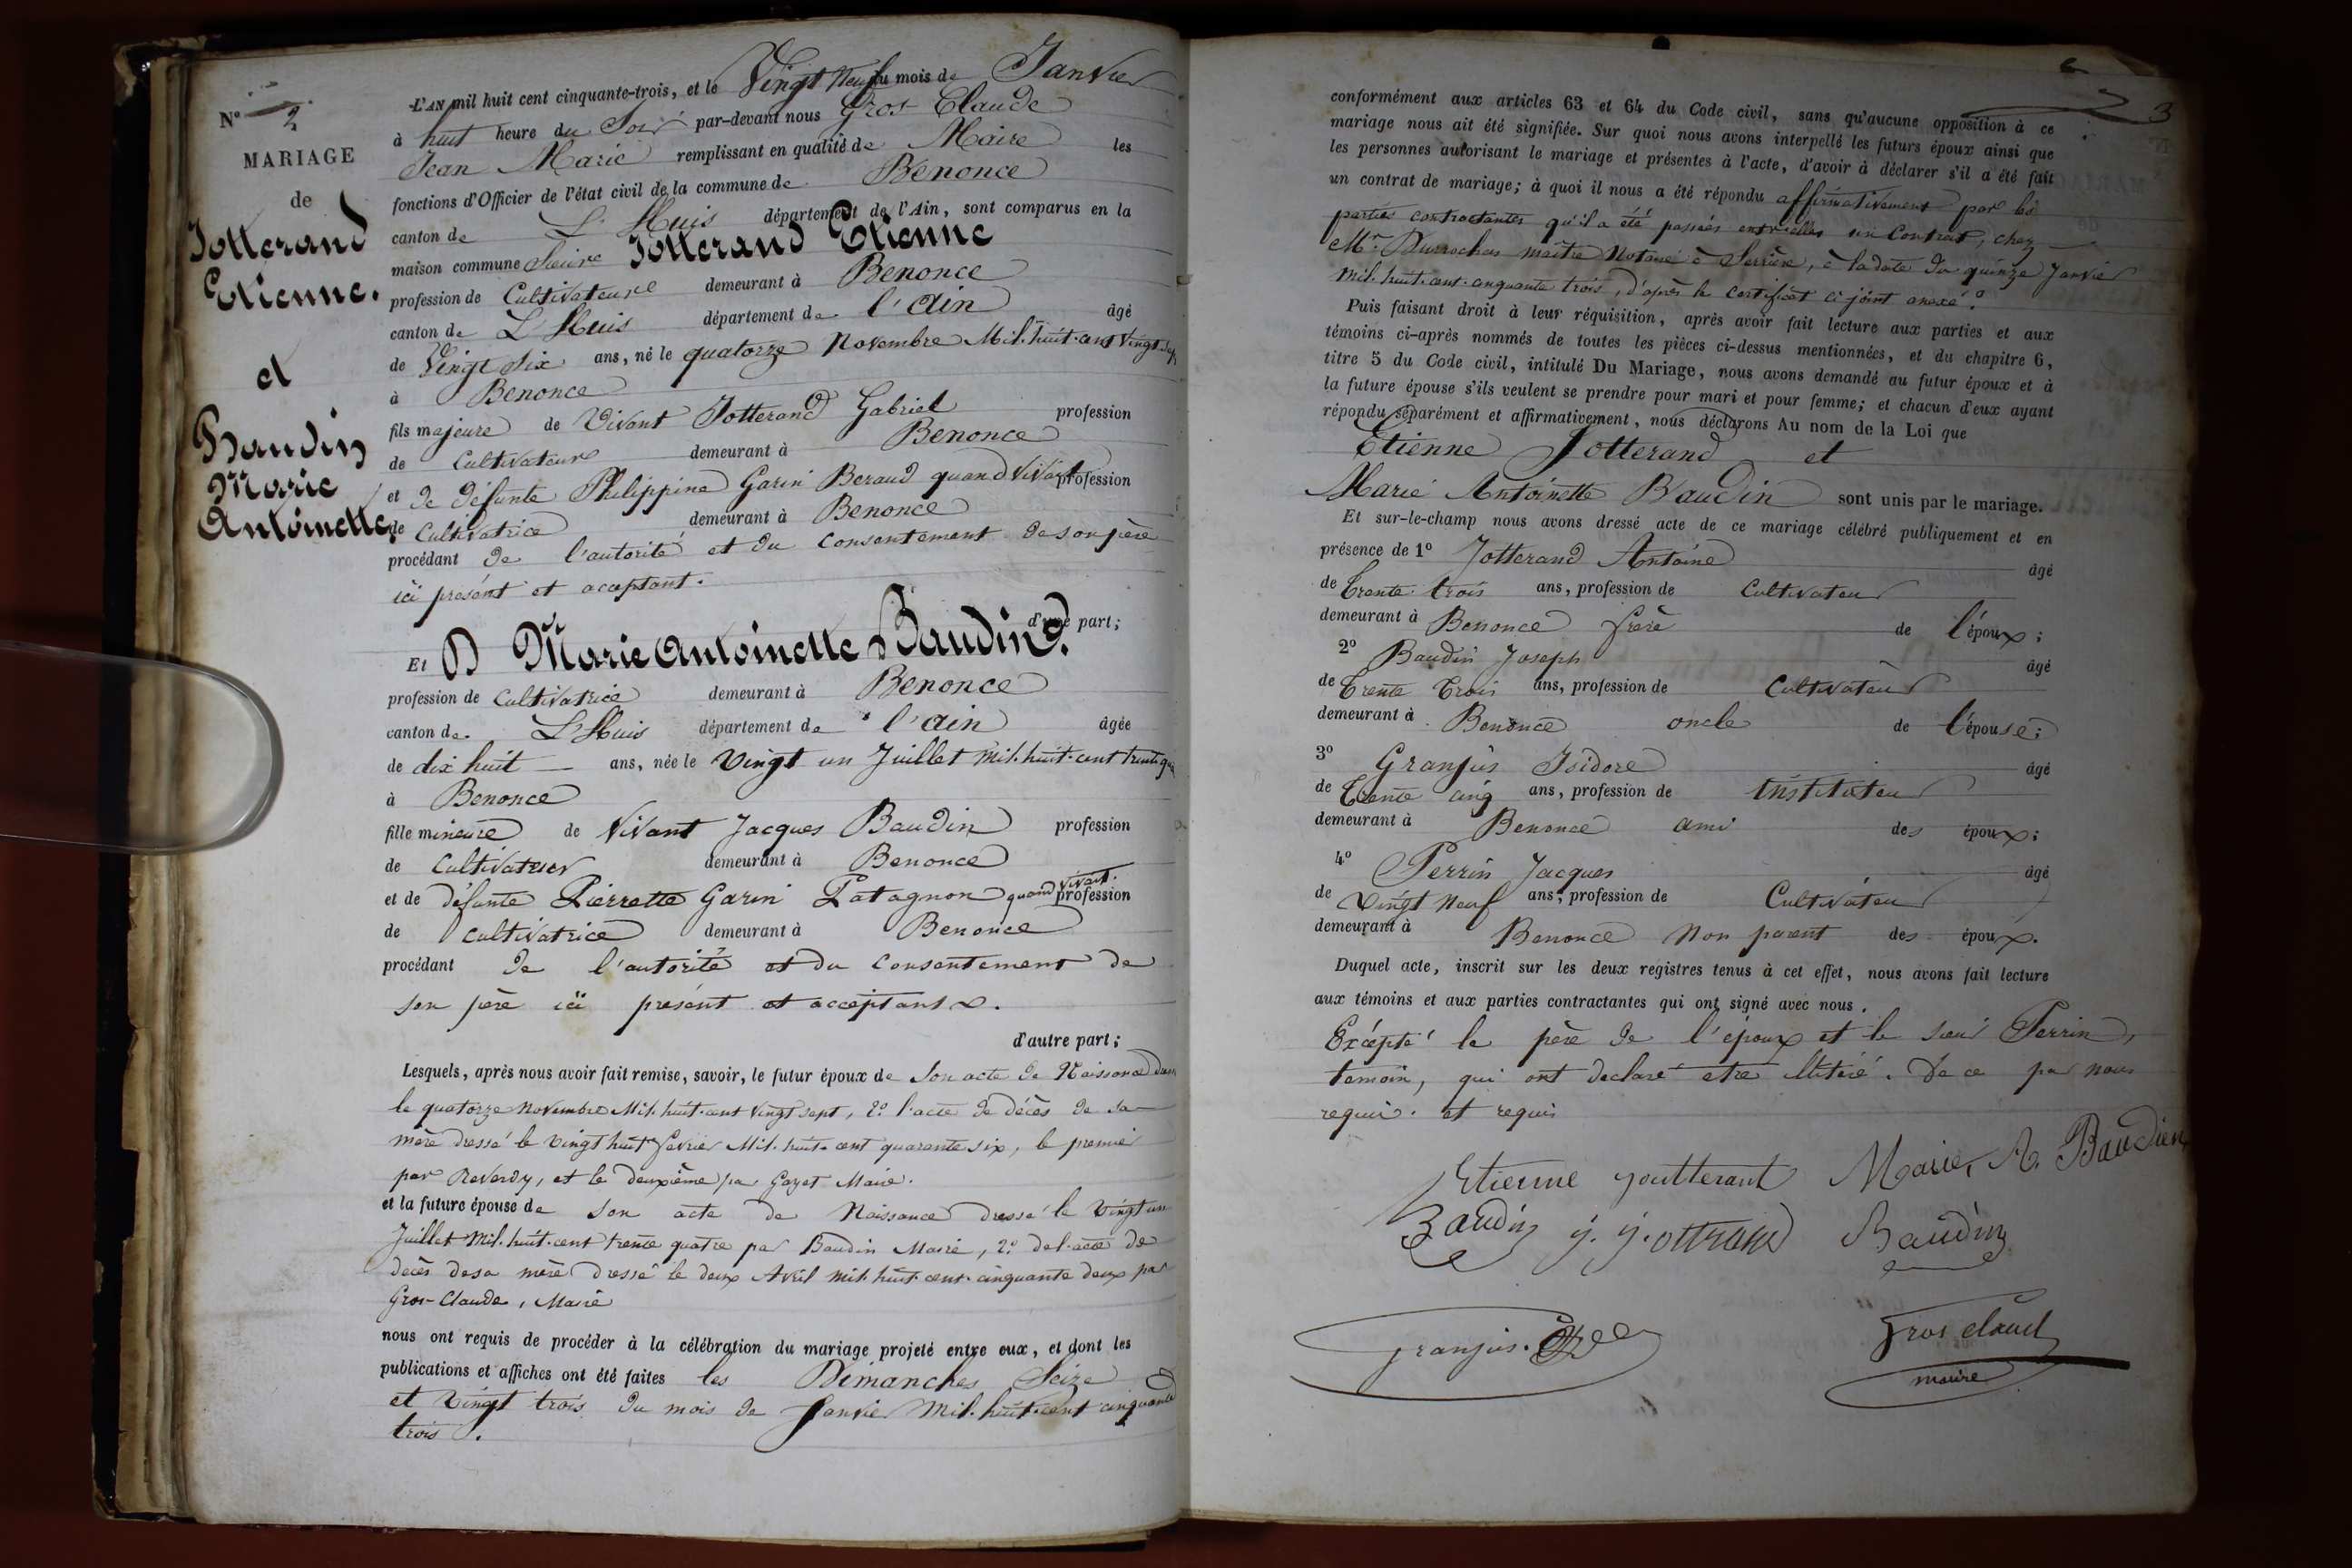 N° 2
MARIAGE
de
Jotterand
Etienne.
et
Baudin
Marie
Antoinette
L'AN mil huit cent cinquante-trois, et le Vingt Neuf du mois de Janvier
à huit heure du Soir par-devant nous Gros Claude
Jean Marie remplissant en qualité de Maire les
fonctions d'Officier de l'état civil de la commune de Benonce
canton de L'Huis département de l'Ain, sont comparus en la
maison commune Sieure Jotterand Etienne
profession de Cultivateure demeurant à Benonce
canton de L'Huis département de l'ain âgé
de Vingt Six ans, né le quatorze Novembre Mil. huit. cent Vingt
à Benonce
fils majeure de Vivant Jotterand Gabriel profession
de Cultivateure demeurant à Benonce
et de défunte Philippine Garin Beraud quand Vivait profession
de Cultivatrice demeurant à Benonce
procédant de l'autorité et du consentement de son père
ici présent et acceptant.
d'une part;
Et D Marie Antoinette Baudin
profession de Cultivatrice demeurant à Benonce
canton de L'Huis département de l'ain âgée
de dix huit ans, née le Vingt un Juillet Mil. huit. cent trente
à Benonce
fille mineure de Vivant Jacques Baudin profession
de Cultivateur demeurant à Benonce
et de défunte Pierrette Garin Patagnon quand vivait profession
de Cultivatrice demeurant à Benonce
procédant de l'autorité et du consentement de
son père ici présent et acceptant.
d'autre part;
Lesquels, après nous avoir fait remise, savoir, le futur époux de Son acte de Naissance
le quatorze Novembre Mil. huit. cent Vingt sept, 2° l'acte de décès de sa
mère dressé le Vingt huit Fevrier Mil. huit. cent quarante six, le premier
par Reverdy, et le deuxième par Gayet Maire.
et la future épouse de son acte de Naissance dressé le Vingt un
Juillet Mil. huit. cent trente quatre par Baudin Maire, 2° de l'acte de
décès de sa mère dressé le deux Avril mil. huit. cent. cinquante deux par
Gros-Claude, Maire
nous ont requis de procéder à la célébration du mariage projeté entre eux, et dont les
publications et affiches ont été faites les Dimanches Seize
et Vingt trois du mois de Janvier Mil. huit. cent cinquante
trois.
3
conformément aux articles 63 et 64 du Code civil, sans qu'aucune opposition à ce
mariage nous ait été signifiée. Sur quoi nous avons interpellé les futurs époux ainsi que
les personnes autorisant le mariage et présentes à l'acte, d'avoir à déclarer s'il a été fait
un contrat de mariage; à quoi il nous a été répondu affirmativement par les
parties contractantes qu'il a été passées entr'elles un Contrat, chez
Mr. maître Notaire à Serrière, à la date du quinze Janvier
Mil. huit. cent. cinquante trois, d'après le Certificat ci joint anexé.
Puis faisant droit à leur réquisition, après avoir fait lecture aux parties et aux
témoins ci-après nommés de toutes les pièces ci-dessus mentionnées, et du chapitre 6,
titre 5 du Code civil, intitulé Du Mariage, nous avons demandé au futur époux et à
la future épouse s'ils veulent se prendre pour mari et pour femme; et chacun d'eux ayant
répondu séparément et affirmativement, nous déclarons Au nom de la Loi que
Etienne Jotterand et
Marie Antoinette Baudin sont unis par le mariage.
Et sur-le-champ nous avons dressé acte de ce mariage célébré publiquement et en
présence de 1° Jotterand Antoine âgé
de Trente trois ans, profession de Cultivateur
demeurant à Benonce frère de l'époux;
2° Baudin Joseph âgé
de Trente Trois ans, profession de Cultivateur
demeurant à Benonce oncle de l'épouse;
3° Granjus Isidore âgé
de Trente cinq ans, profession de instituteur
demeurant à Benonce ami des époux;
4° Perrin Jacques âgé
de Vingt Neuf ans, profession de Cultivateur
demeurant à Benonce Non parent des époux.
Duquel acte, inscrit sur les deux registres tenus à cet effet, nous avons fait lecture
aux témoins et aux parties contractantes qui ont signé avec nous.
Excépté le père de l'époux et le sieur Perrin,
temoin, qui ont declaré etre illitéré. De ce par nous
requis. et requis
Etienne joutterant Marie, A. Baudien
Baudin j. jottrand Baudin
granjus.
gros claud
maire